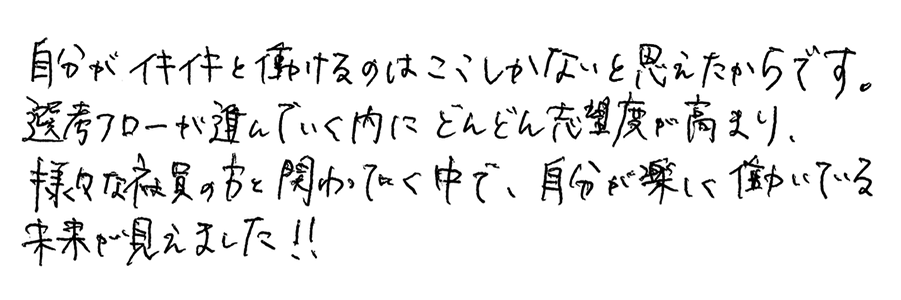 自分がイキイキと働けるのはここしかないと思えたからです。
選考フローが進んでいく内にどんどん志望度が高まり、
様々な社員の方と関わっていく中で、自分が楽しく働いている
未来が見えました!!